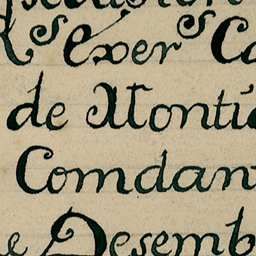 R.s Exer.s Ca
de Monti
Comdan
e Desemb